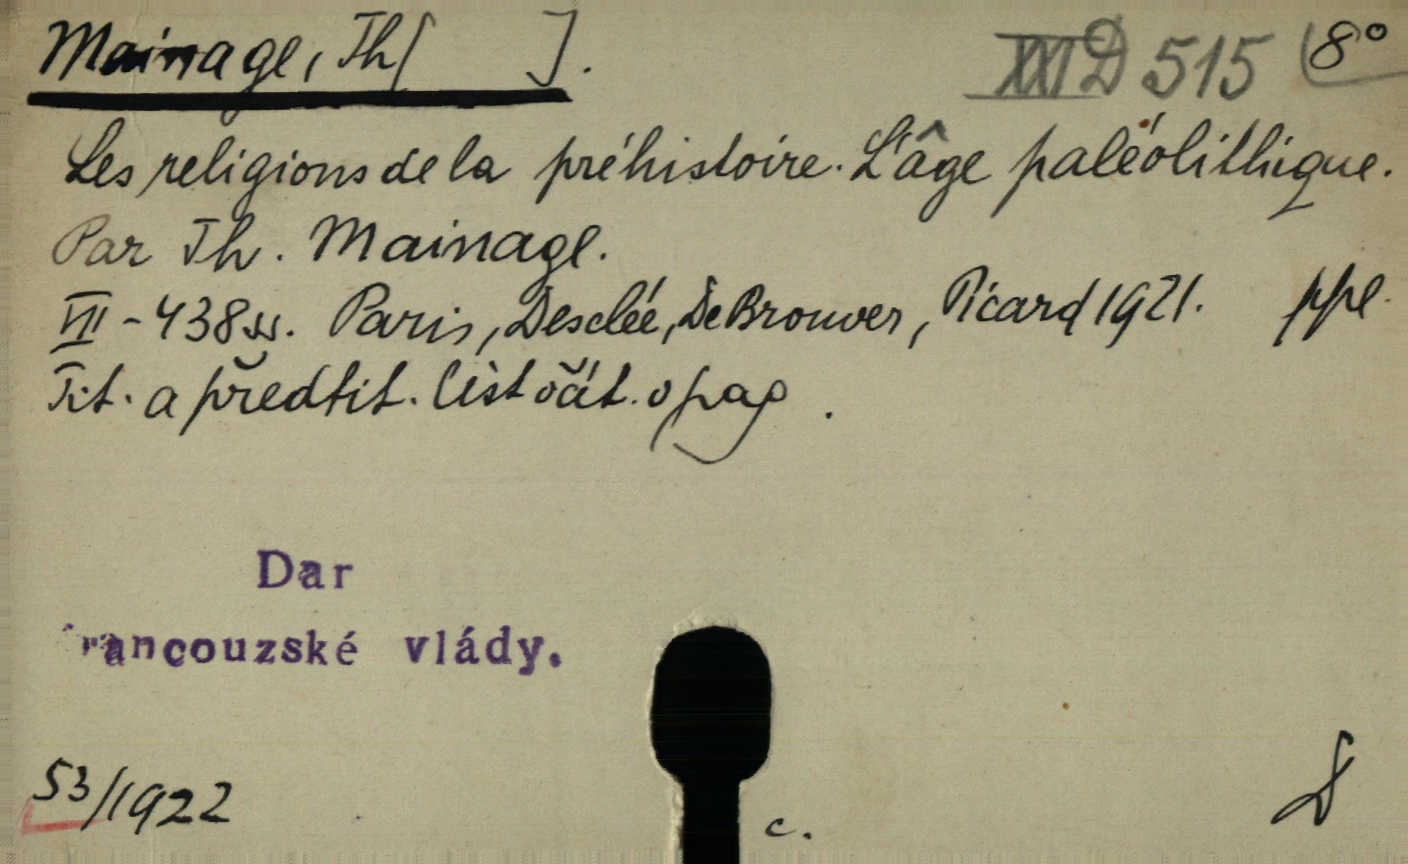 Mainage, Th[ ].
XXI D 515 8°
Les religions de la préhistoire. L'âge paléolithique.
Par Th. Mainage.
VII - 438 ss. Paris, Desclée, De Brouwer, Picard 1921. ppl.
Tit. a předtit. list očát. opag.
Dar
francouzské vlády.
53/1922
c.